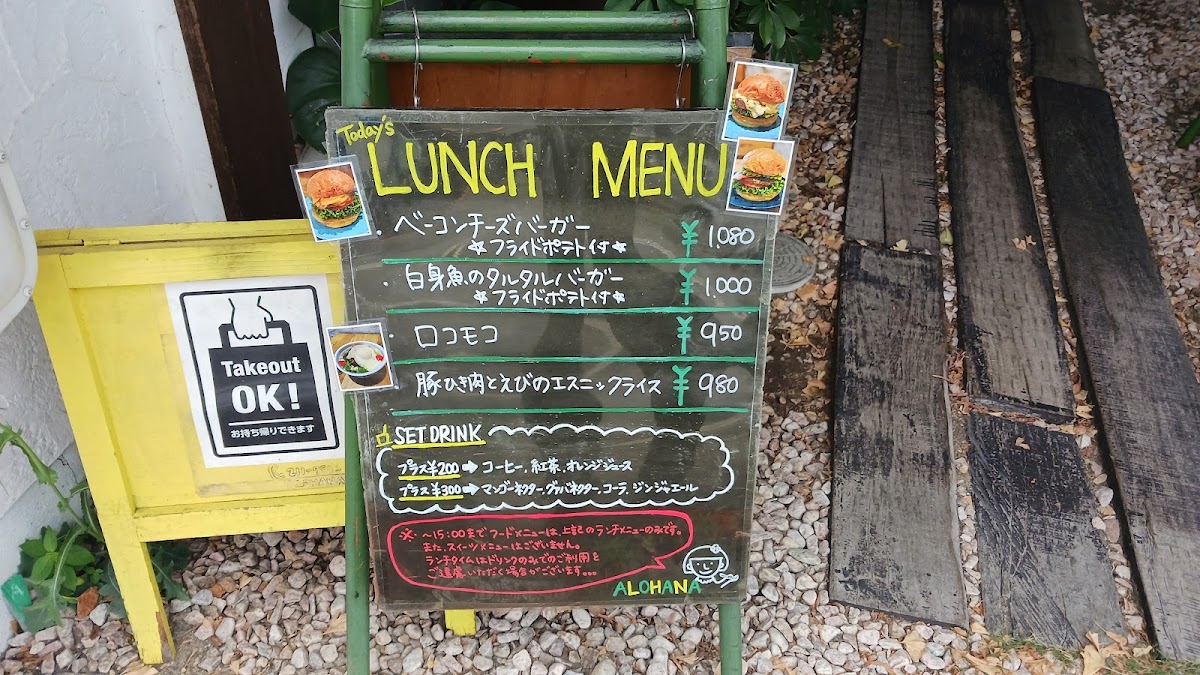 Today's
LUNCH MENU
・ベーコンチーズバーガー ¥1080
★フライドポテト付★
・白身魚のタルタルバーガー ¥1,000
★フライドポテト付★
・ロコモコ ¥950
豚ひき肉とえびのエスニックライス ¥980
SET DRINK
プラス¥200➡コーヒー、紅茶、オレンジジュース
プラス¥300➡マンゴーネクター、グァバネクター、コーラ、ジンジャエール
※〜15:00までフードメニューは上記のランチメニューのみです。
また、スイーツメニューはございません。
ランチタイムはドリンクのみでのご利用を
ご遠慮いただく場合がございます。。。
ALOHANA
Takeout
OK!
お持ち帰りできます